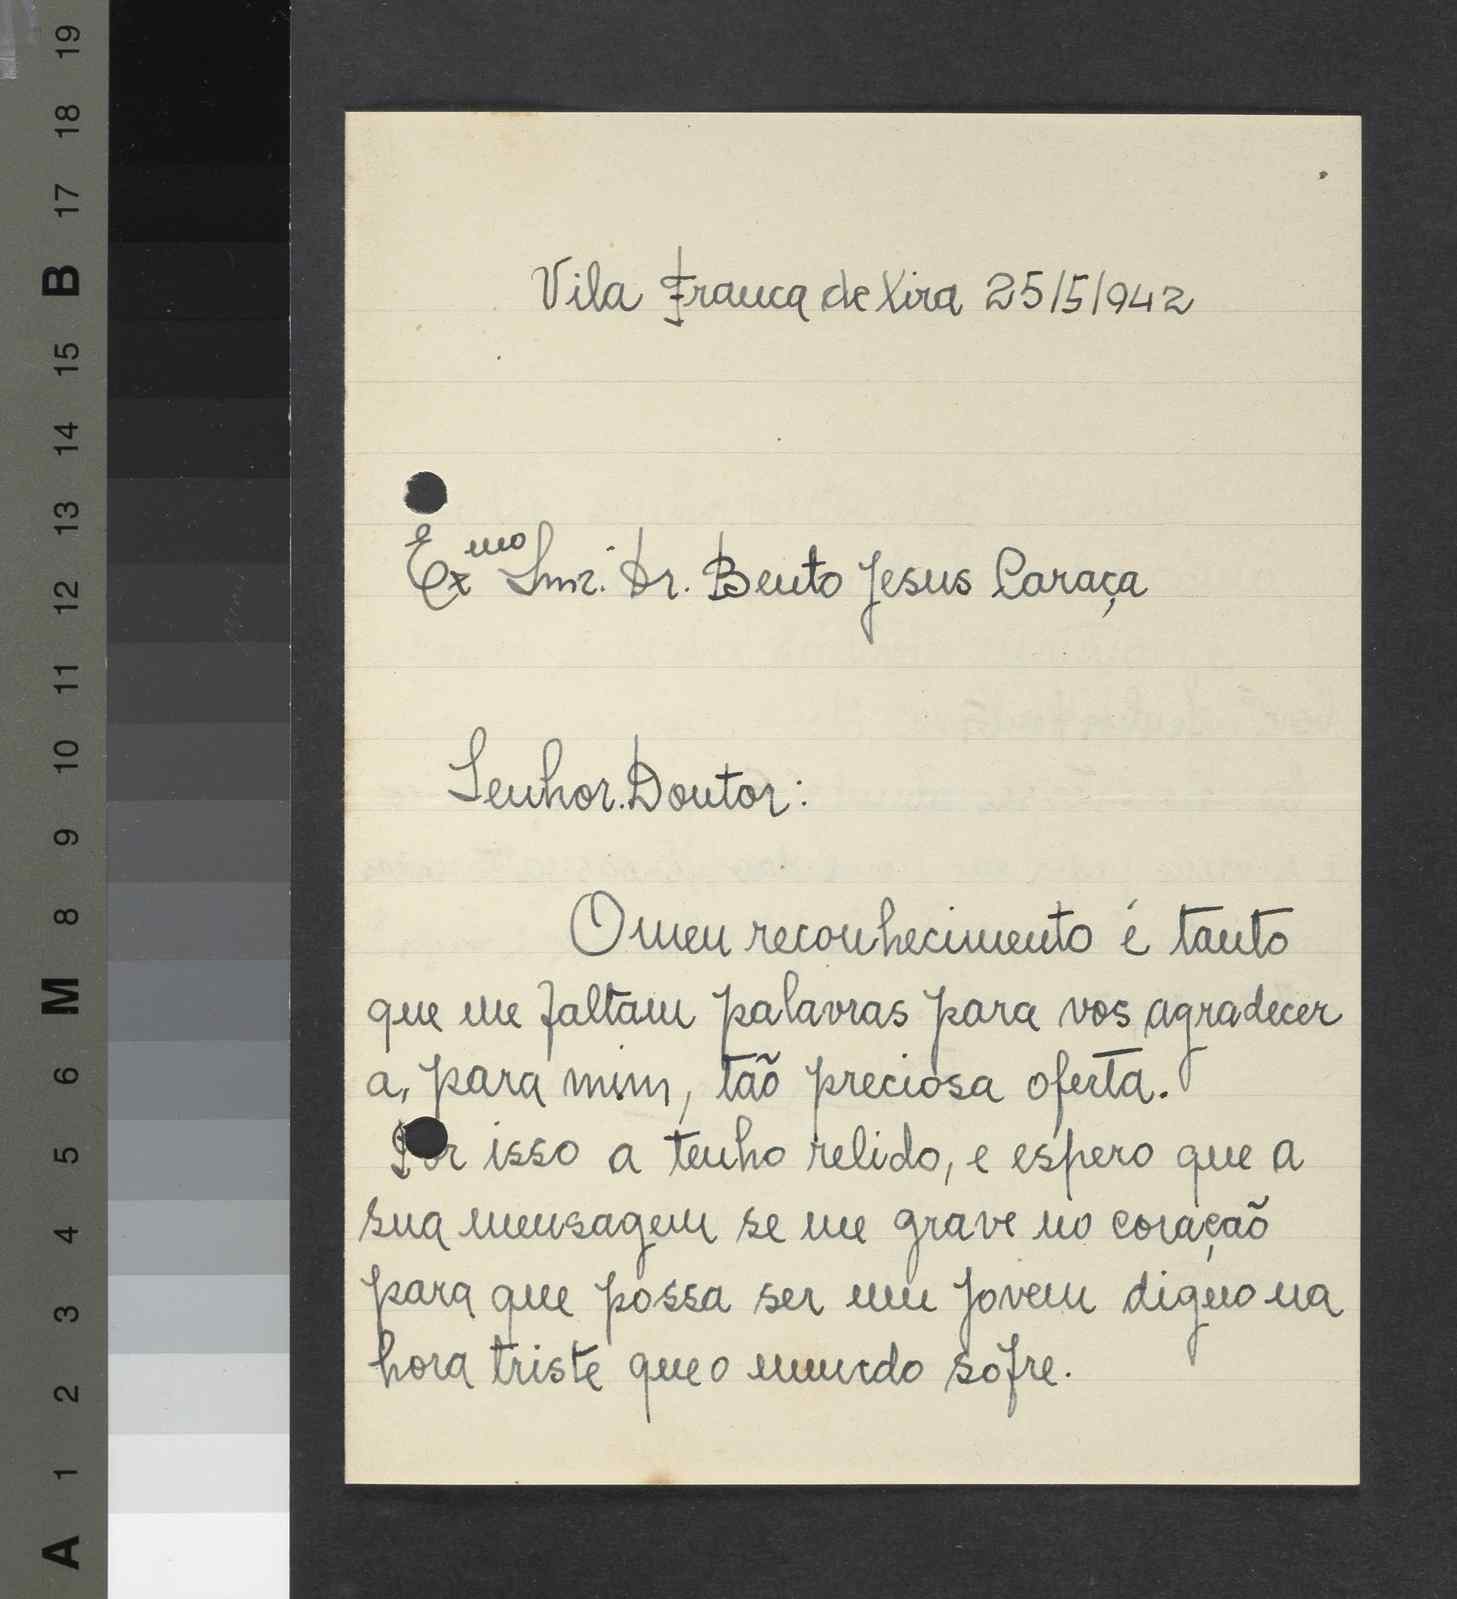 19
18
17
B
15
14
13
12
11
10
9
8
M
6
5
4
3
2
1
A
Vila Franca de Xira 25/5/942
Exmo Snr. Dr. Bento Jesus Caraça
Senhor. Doutor:
O meu reconhecimento é tanto
que me faltam palavras para vos agradecer
a, para mim, tão preciosa oferta.
Por isso a tenho relido, e espero que a
sua mensagem se me grave no coração
para que possa ser um jovem digno na
hora triste que o mundo sofre.